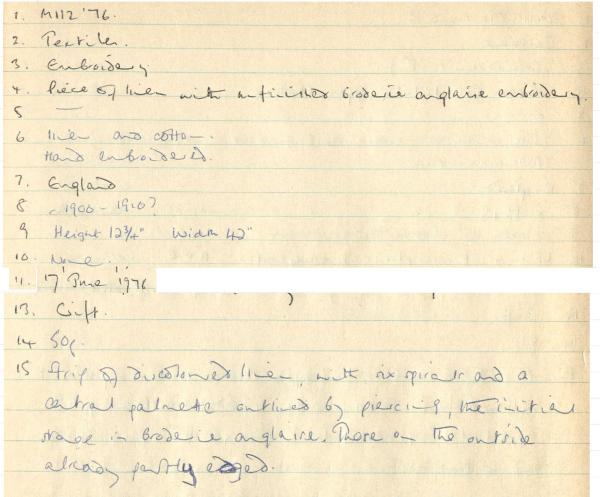 1. M112 '76.
2. Textiles.
3. Embroidery
4. Piece of linen with unfinished broderie anglaise embroidery.
5 —
6 linen and cotton.
Hand embroidered.
7. England
8 c.1900 - 1910?
9 Height 12¾" Width 42"
10. None.
11. 17 June 1976
13. Gift.
14 50p.
15 Strip of discoloured linen, with six spirals and a
central palmette outlined by piercing, the initial
stage in broderie anglaise. Those on the outside
already partly edged.